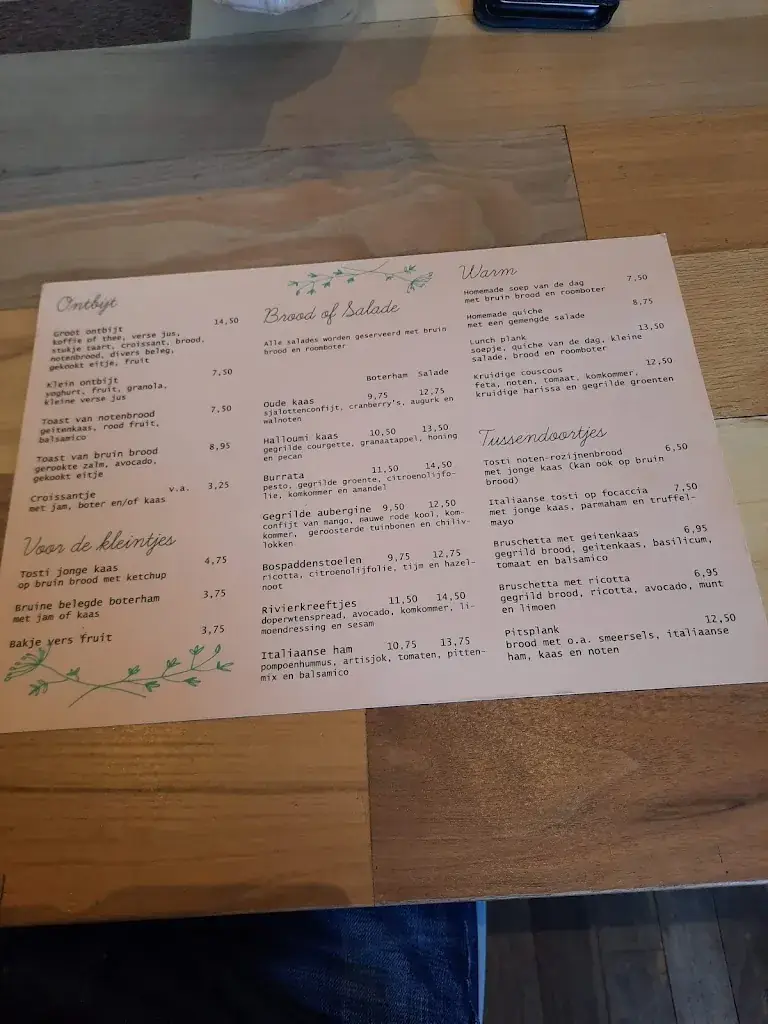 Ontbijt
Groot ontbijt 14,50
koffie of thee, verse jus,
stukje taart, croissant, brood,
notenbrood, divers beleg,
gekookt eitje, fruit
Klein ontbijt 7,50
yoghurt, fruit, granola,
kleine verse jus
Toast van notenbrood 7,50
geitenkaas, rood fruit,
balsamico
Toast van bruin brood 8,95
gerookte zalm, avocado,
gekookt eitje
Croissantje v.a. 3,25
met jam, boter en/of kaas
Voor de kleintjes
Tosti jonge kaas 4,75
op bruin brood met ketchup
Bruine belegde boterham 3,75
met jam of kaas
Bakje vers fruit 3,75
Brood of Salade
Alle salades worden geserveerd met bruin
brood en roomboter
Boterham Salade
Oude kaas 9,75 12,75
sjalottenconfijt, cranberry's, augurk en
walnoten
Halloumi kaas 10,50 13,50
gegrilde courgette, granaatappel, honing
en pecan
Burrata 11,50 14,50
pesto, gegrilde groente, citroenolijfo-
lie, komkommer en amandel
Gegrilde aubergine 9,50 12,50
confijt van mango, rauwe rode kool, kom-
kommer, geroosterde tuinbonen en chiliv-
lokken
Bospaddenstoelen 9,75 12,75
ricotta, citroenolijfolie, tijm en hazel-
noot
Rivierkreeftjes 11,50 14,50
doperwtenspread, avocado, komkommer, li-
moendressing en sesam
Italiaanse ham 10,75 13,75
pompoenhummus, artisjok, tomaten, pitten-
mix en balsamico
Warm
Homemade soep van de dag 7,50
met bruin brood en roomboter
Homemade quiche 8,75
met een gemengde salade
Lunch plank 13,50
soepje, quiche van de dag, kleine
salade, brood en roomboter
Kruidige couscous 12,50
feta, noten, tomaat, komkommer,
kruidige harissa en gegrilde groenten
Tussendoortjes
Tosti noten-rozijnenbrood 6,50
met jonge kaas (kan ook op bruin
brood)
Italiaanse tosti op focaccia 7,50
met jonge kaas, parmaham en truffel-
mayo
Bruschetta met geitenkaas 6,95
gegrild brood, geitenkaas, basilicum,
tomaat en balsamico
Bruschetta met ricotta 6,95
gegrild brood, ricotta, avocado, munt
en limoen
Pitsplank 12,50
brood met o.a. smeersels, italiaanse
ham, kaas en noten